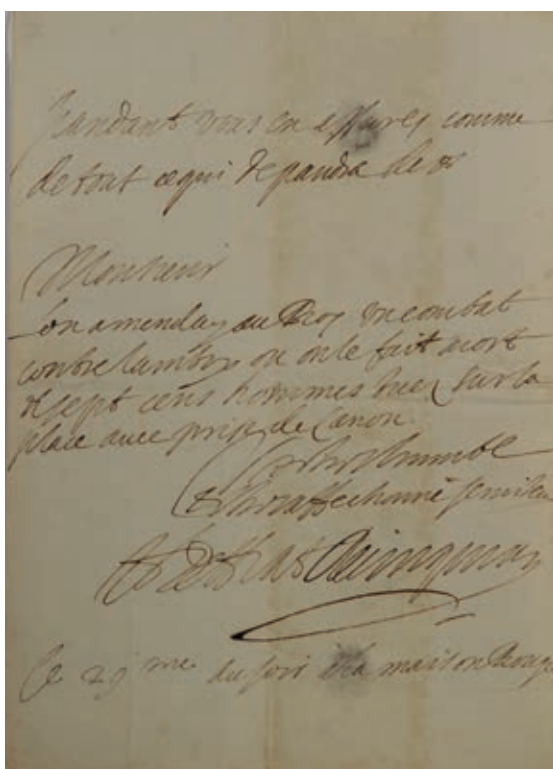 pandant vous en assurer comme
de tout ce qui depandra de
Monsieur
Lon a menday au Roy un combat
contre lamboy ou on le fait mort
et sept cens hommes tuez sur la
place avec prise de canon
Vostre tres humble
et tres affectionné serviteur
Le 29 me du soir à la maison Rouge